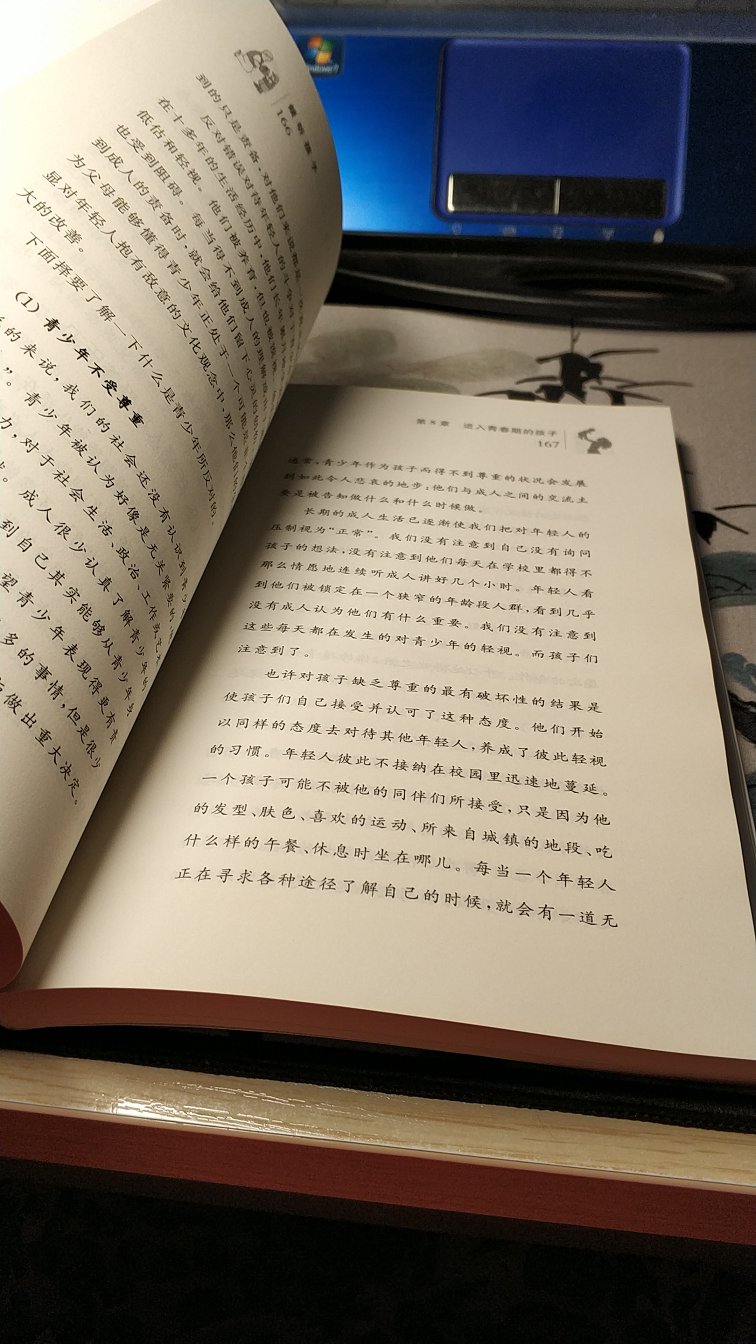 倾听孩子
166
到的只是责备,对他们来说都是
反对错误对待年轻人的斗争
在十多年的生活经历中,他们长年累月
低估和轻视。他们被养育,但也被误解
也受到阻碍。每当得不到成人的理解
到成人的责备时,就会给他们留下心灵的
为父母能够懂得青少年正处于一个可能是
显对年轻人抱有敌意的文化观念中,那么他
大的改善。
下面择要了解一下什么是青少年所反对的。
(1) 青少年不受尊重
的来说,我们的社会还没有认识到青少
”。青少年被认为好像是无关紧要的
力,对于社会生活、政治、工作
成人很少认真了解青少年的
到自己其实能够从青少年
望青少年表现得更有责
多的事情,但是很少
做出重大决定。
第8章 进入青春期的孩子
167
通常,青少年作为孩子而得不到尊重的状况会发展
到如此令人悲哀的地步:他们与成人之间的交流主
要是被告知做什么和什么时候做。
长期的成人生活已逐渐使我们把对年轻人的
压制视为“正常”。我们没有注意到自己没有询问
孩子的想法,没有注意到他们每天在学校里都得不
那么情愿地连续听成人讲好几个小时。年轻人看
到他们被锁定在一个狭窄的年龄段人群,看到几乎
没有成人认为他们有什么重要。我们没有注意到
这些每天都在发生的对青少年的轻视。而孩子们
注意到了。
也许对孩子缺乏尊重的最有破坏性的结果是
使孩子们自己接受并认可了这种态度。他们开始
以同样的态度去对待其他年轻人,养成了彼此轻视
的习惯。年轻人彼此不接纳在校园里迅速地蔓延。
一个孩子可能不被他的同伴们所接受,只是因为他
的发型、肤色、喜欢的运动、所来自城镇的地段、吃
什么样的午餐、休息时坐在哪儿。每当一个年轻人
正在寻求各种途径了解自己的时候,就会有一道无